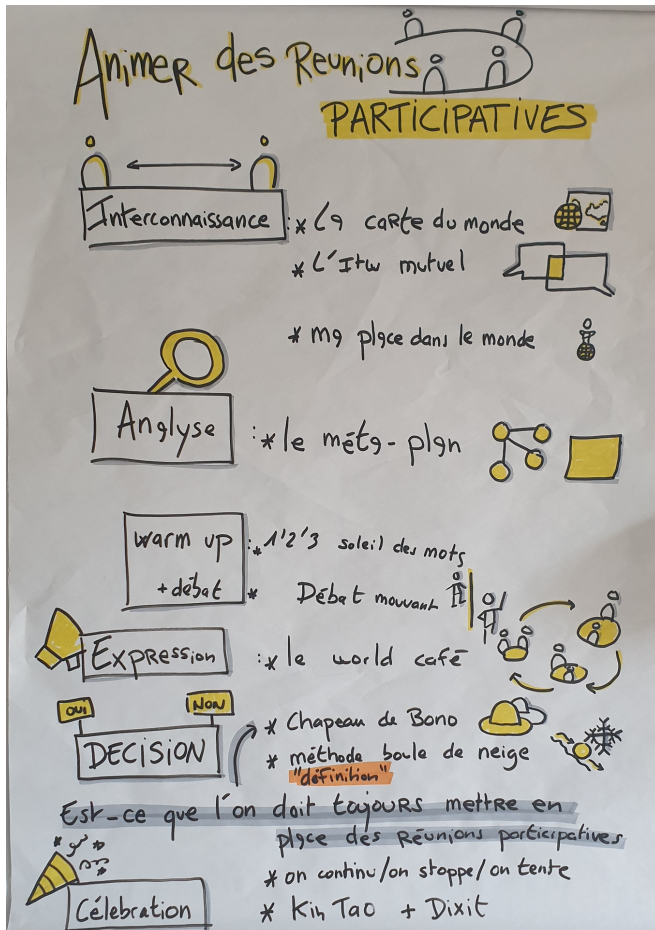 Animer des Reunions
PARTICIPATIVES
Interconnaissance : * La carte du monde
* L'Itw mutuel
* ma place dans le monde
Analyse : * le méta-plan
warm up : * 1'2'3 soleil des mots
+ débat * Débat mouvant
Expression : * le world café
OUI NON
* Chapeau de Bono
DECISION * méthode boule de neige
"définition"
Est-ce que l'on doit toujours mettre en
place des Réunions participatives
* on continu/on stoppe/on tente
Célebration * Kin Tao + Dixit